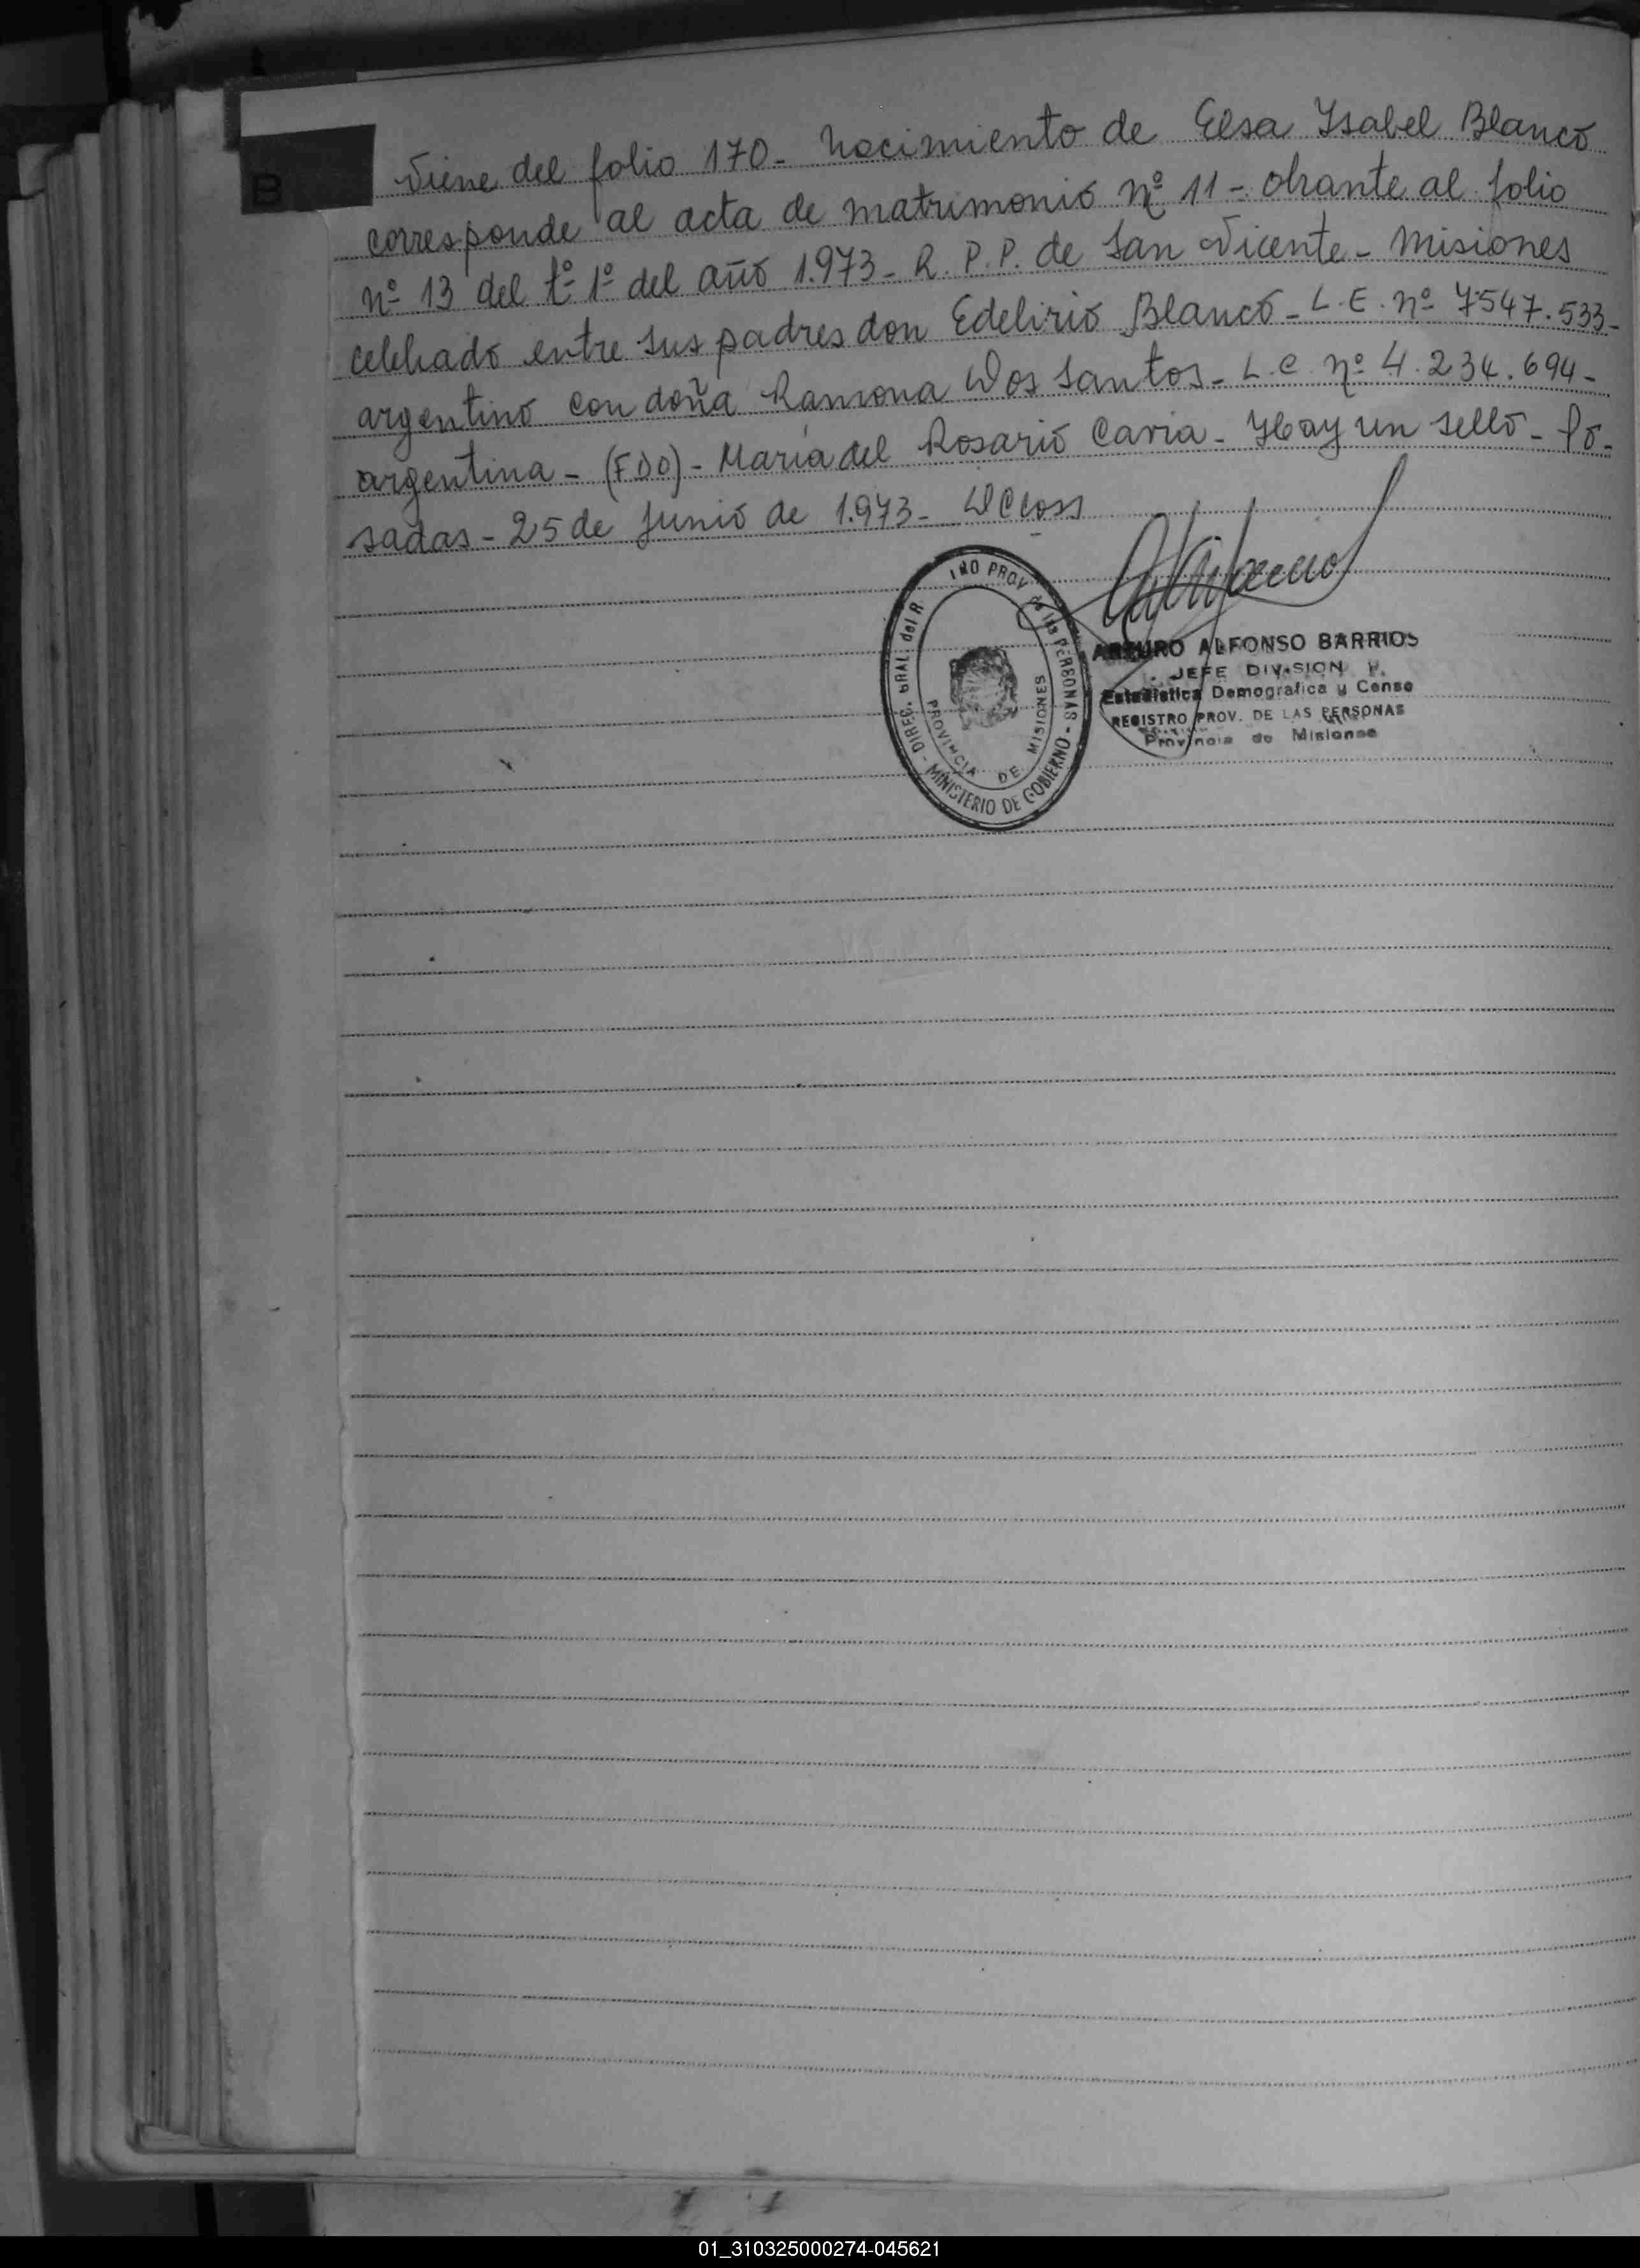 B
Viene del folio 170- Nacimiento de Elsa Ysabel Blanco
corresponde al acta de matrimonio nº 11- obrante al folio
nº 13 del tº 1º del año 1.973- R. P. P. de San Vicente- Misiones
celebrado entre sus padres don Edelirio Blanco- L. E. nº 7.547.533-
argentino con doña Ramona Dos Santos- L. C. nº 4.234.694-
argentina- (FDO)- María del Rosario Caria- Hay un sello- Po-
sadas- 25 de Junio de 1.973-
DIREC. GRAL. del R PROV. de las PERSONAS - MINISTERIO DE GOBIERNO -
PROVINCIA DE MISIONES
ARTURO ALFONSO BARRIOS
JEFE DIVISION
Estadistica Demografica y Censo
REGISTRO PROV. DE LAS PERSONAS
Provincia de Misiones
01_310325000274-045621